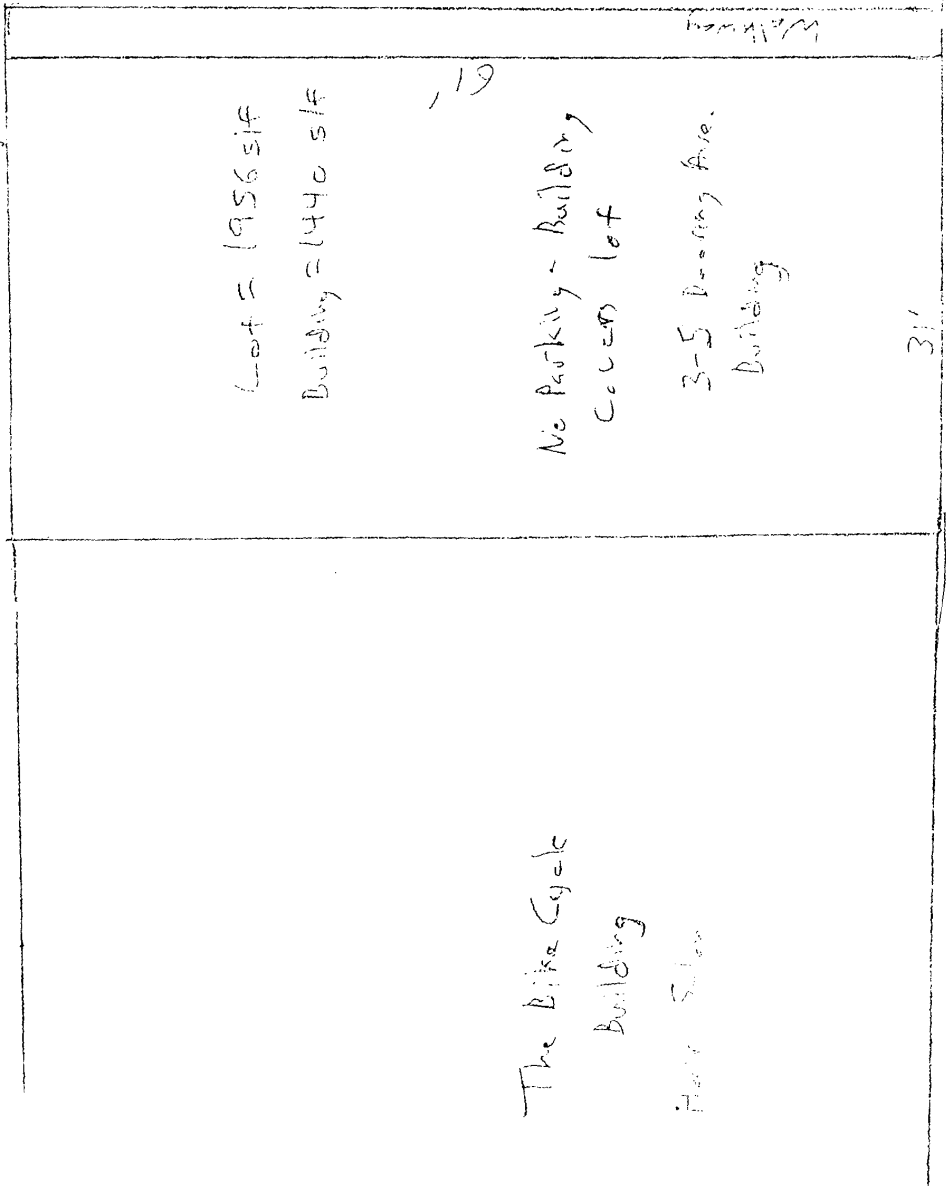 Walkway
61'
Lot = 1956 s/f
Building = 1440 s/f
No Parking - Building
Covers lot
3-5 Deering Ave.
Building
31'
The Bike Cycle
Building
Hair Salon